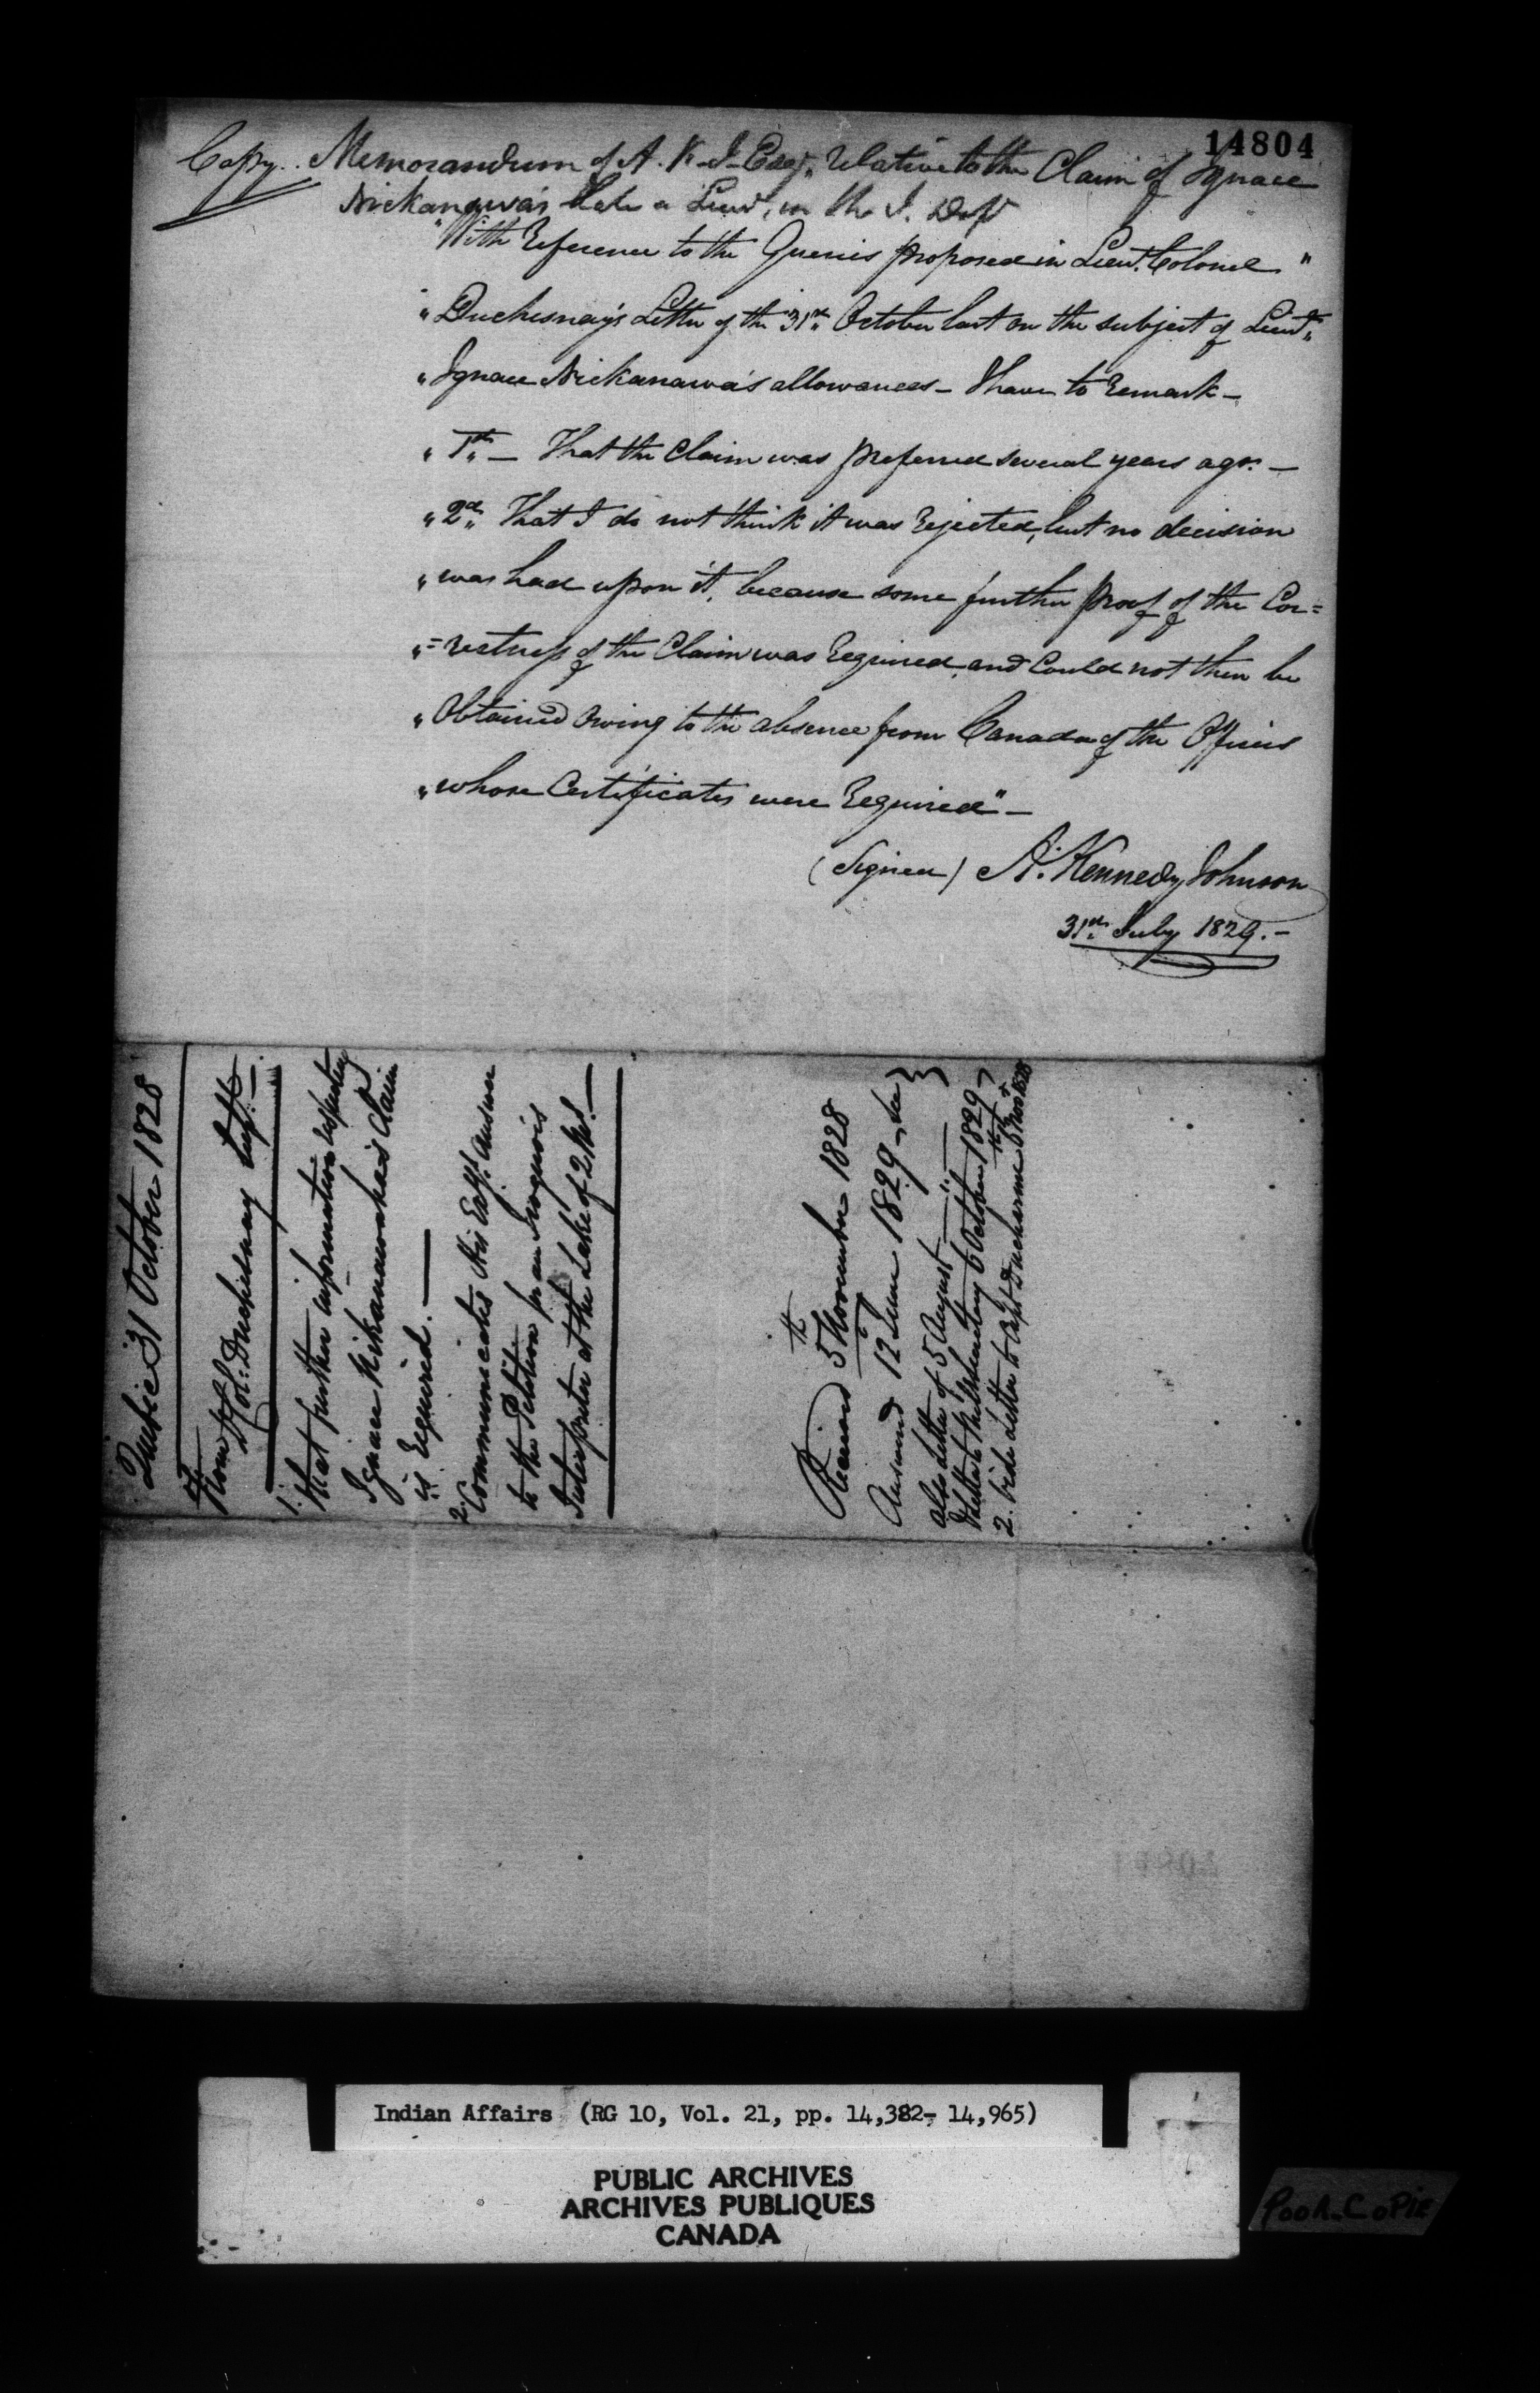 14804
Copy. Memorandum of A. K. J. Esqr. relative to the Claim of Ignace
Nickanawa's late a Lieut, in the I. Dept
"With Reference to the Queries proposed in Lieut. Colonel "
" Duchesnay's Letter of the 31st October last on the subject of Lieut "
" Ignace Nickanawa's allowances – I have to Remark –
" 1st – That the Claim was preferred several years ago. –
" 2d That I do not think it was Rejected, but no decision
" was had upon it, because some further proof of the Cor=
" =rectness of the Claim was Required, and Could not then be
" Obtained owing to the absence from Canada of the Officers
" whose Certificates were Required" –
(Signed) A. Kennedy Johnson
31st July 1829. –
Quebec 31 October 1828
From Lt Col: Duchesnay Supt. –
1. That further information respecting
Ignace Nikanawaha's Claim
is Required. –
2. Communicates His Excy. Answer
to the Petition for an Iroquois
Interpreter at the Lake of 2 Mns. –
Received 5th November 1828
Answered 12 June 1829 – see
also letter of 5 August – " –
& letter to Mil. Secretary 6 October 1829
2. vide Letter to Capt Ducharme 6th Nov 1828
Indian Affairs (RG 10, Vol. 21, pp. 14,382- 14,965)
PUBLIC ARCHIVES
ARCHIVES PUBLIQUES
CANADA
POOR_COPIE